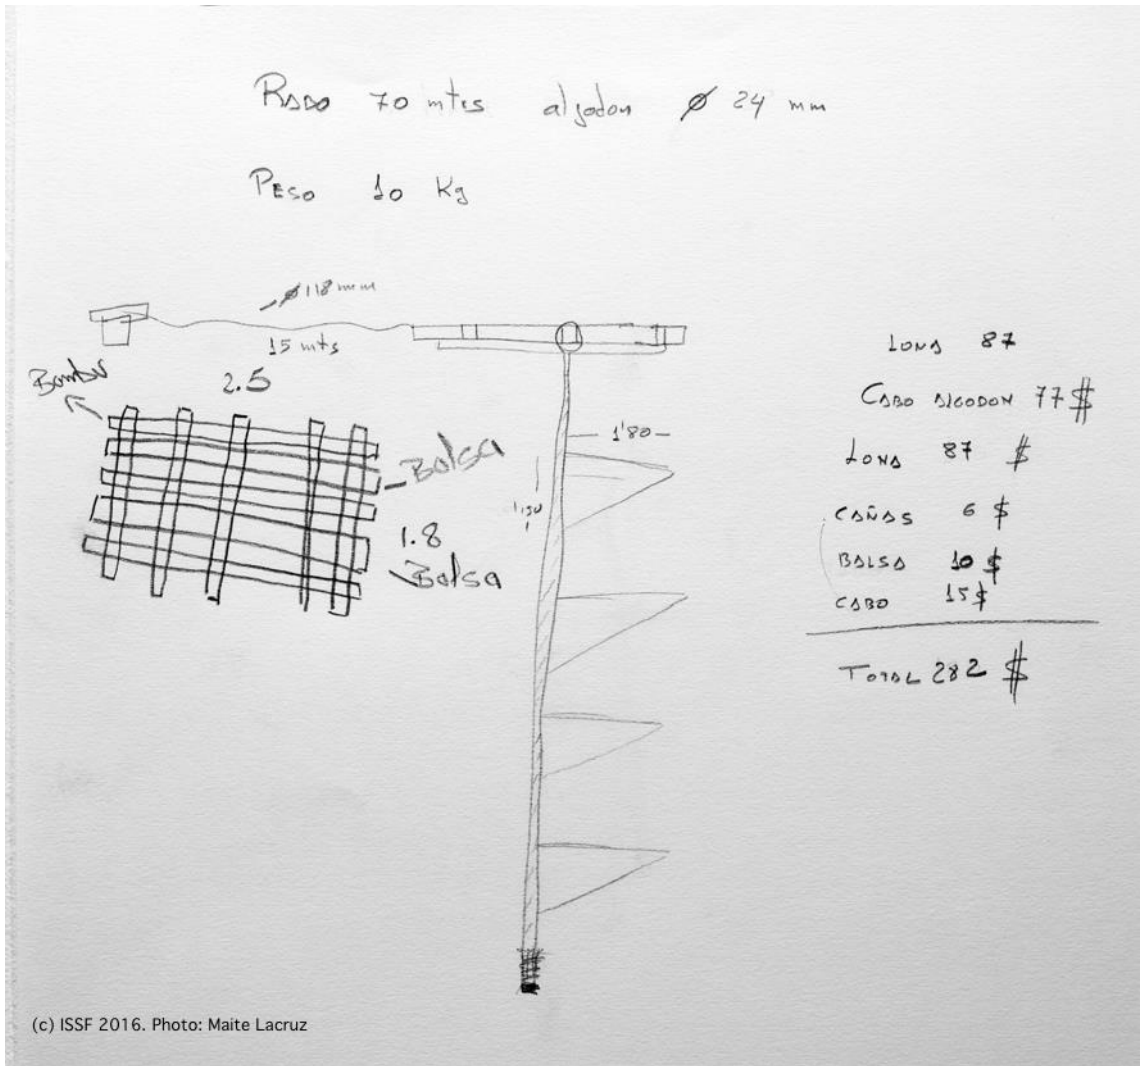 Rabo 70 mtrs algodon Ø 24 mm
Peso 10 Kg
Ø 118 mm
15 mts
2.5
Bolsa
1.8
Bolsa
1'80
Lona 87
Cabo algodon 77 $
Lona 87 $
Cañas 6 $
Balsa 10 $
Cabo 15 $
Total 282 $
(c) ISSF 2016. Photo: Maite Lacruz